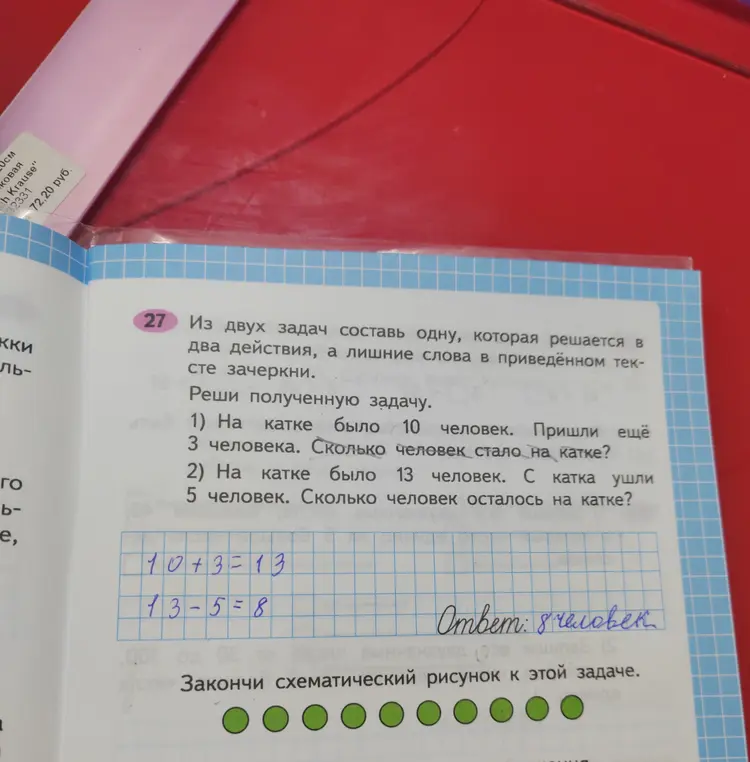 72.20 руб.
27 Из двух задач составь одну, которая решается в
два действия, а лишние слова в приведённом тек-
сте зачеркни.
Реши полученную задачу.
1) На катке было 10 человек. Пришли ещё
3 человека. Сколько человек стало на катке?
2) На катке было 13 человек. С катка ушли
5 человек. Сколько человек осталось на катке?
10+3=13
13-5=8
Ответ: 8 человек.
Закончи схематический рисунок к этой задаче.